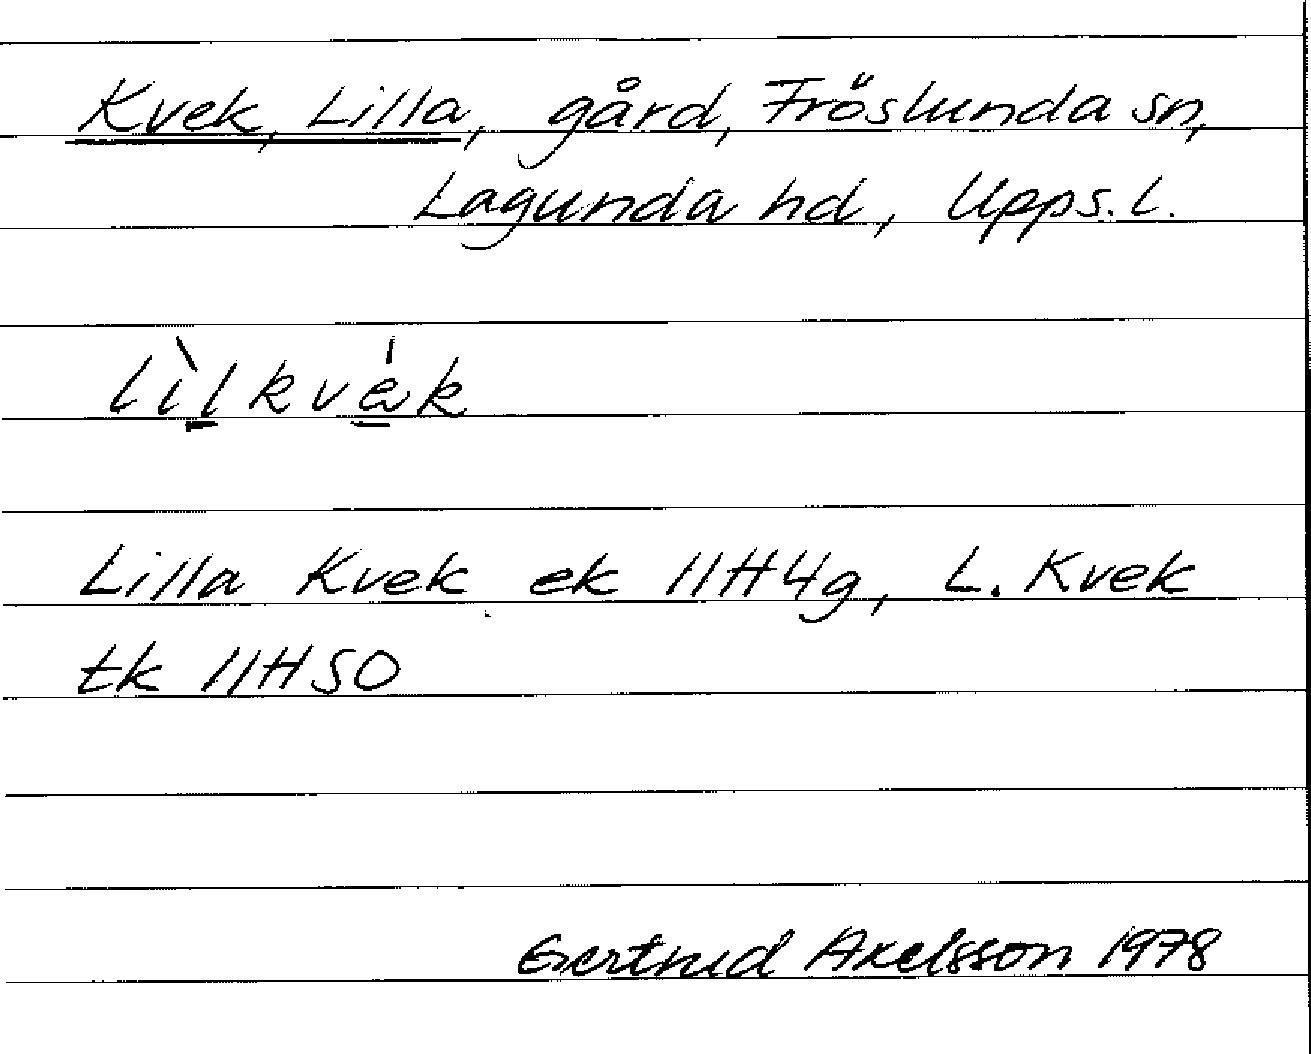 Kvek, Lilla, gård, Fröslunda sn,
Lagunda hd, Upps. l.
lìlkvék
Lilla Kvek ek 11H4g, L. Kvek
tk 11HSO
Gertrud Axelsson 1978